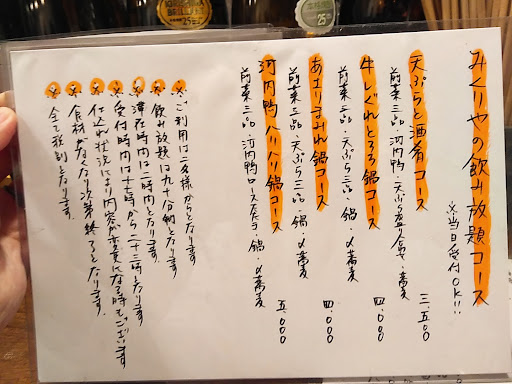 みくりやの飲み放題コース
※当日受付OK!!
天ぷらと酒肴コース
前菜三品・河内鴨・天ぷら盛合せ・〆蕎麦 三、五〇〇
牛しぐれとろろ鍋コース
前菜三品・天ぷら三品・鍋・〆蕎麦 四、〇〇〇
あさりまみれ鍋コース
前菜三品・天ぷら三品・鍋・〆蕎麦 四、〇〇〇
河内鴨ハリハリ鍋コース
前菜三品・河内鴨ロースたたき・鍋・〆蕎麦 五、〇〇〇
※ご利用は二名様からとなります
※飲み放題は九十分制となります
※滞在時間は二時間となります
※受付時間は十七時から二十二時となります
※仕入れ状況により内容が変更になる時もございます
※食材がなくなり次第終了となります。
※全て税別となります。